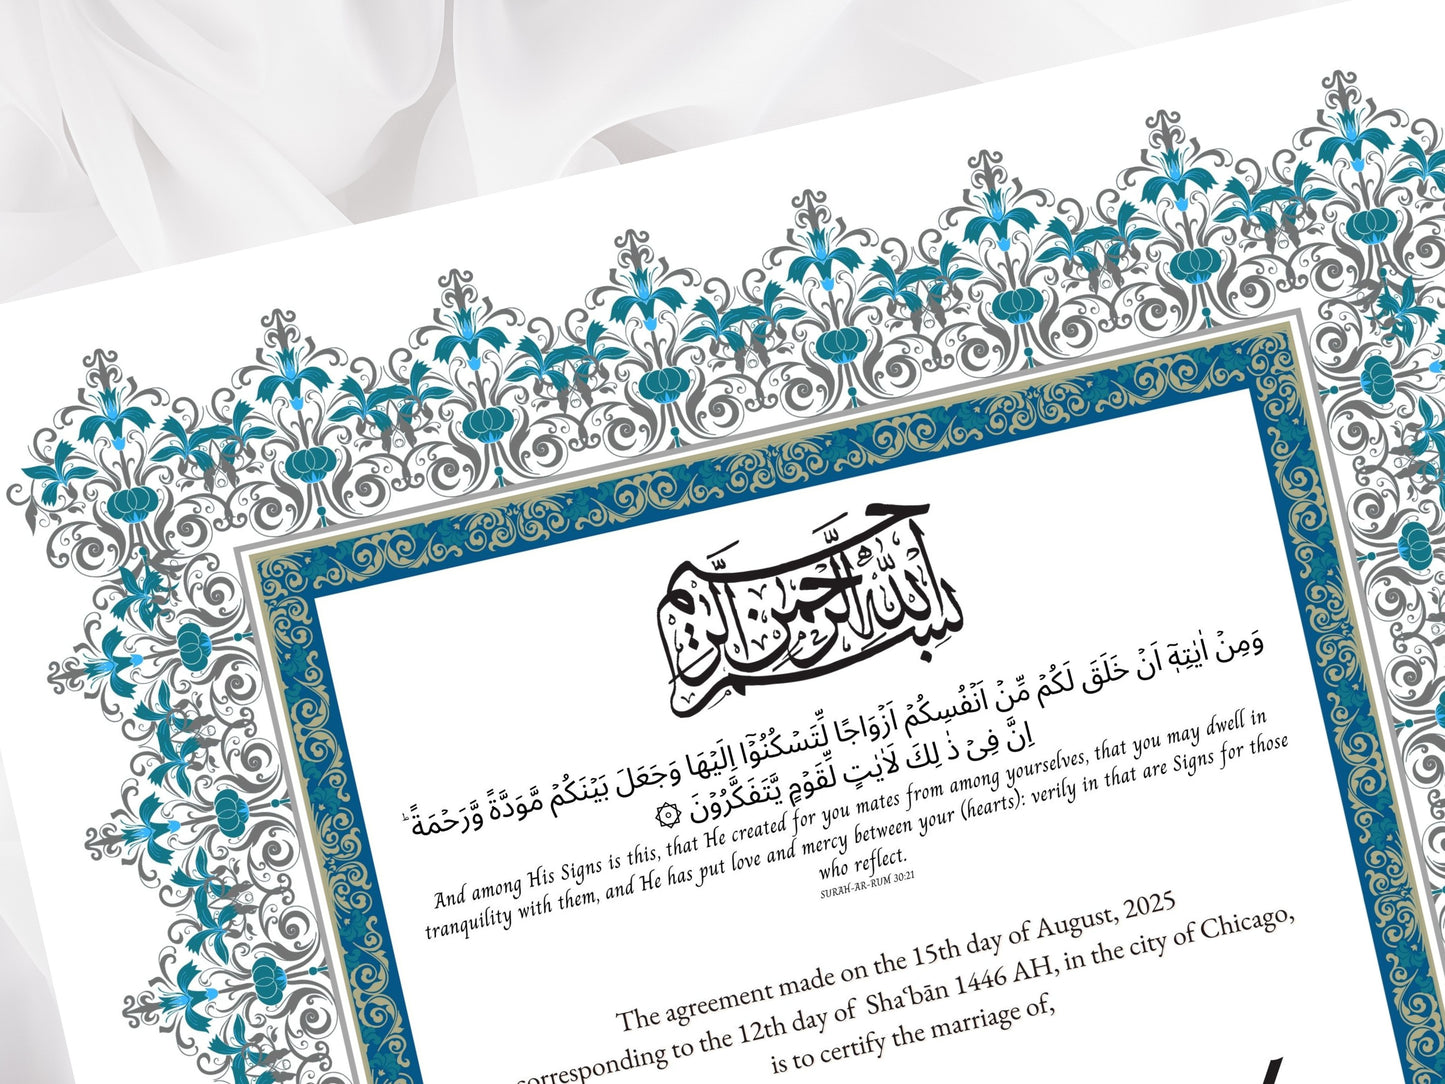 بسم الله الرحمن الرحيم
وَمِنْ اٰيٰتِهٖٓ اَنْ خَلَقَ لَكُمْ مِّنْ اَنْفُسِكُمْ اَزْوَاجًا لِّتَسْكُنُوْٓا اِلَيْهَا وَجَعَلَ بَيْنَكُمْ مَّوَدَّةً وَّرَحْمَةً ؕ
اِنَّ فِىْ ذٰ لِكَ لَاٰيٰتٍ لِّقَوْمٍ يَّتَفَكَّرُوْنَ ۞
And among His Signs is this, that He created for you mates from among yourselves, that you may dwell in
tranquility with them, and He has put love and mercy between your (hearts): verily in that are Signs for those
who reflect.
SURAH-AR-RUM 30:21
The agreement made on the 15th day of August, 2025
corresponding to the 12th day of Shaʿbān 1446 AH, in the city of Chicago,
is to certify the marriage of,